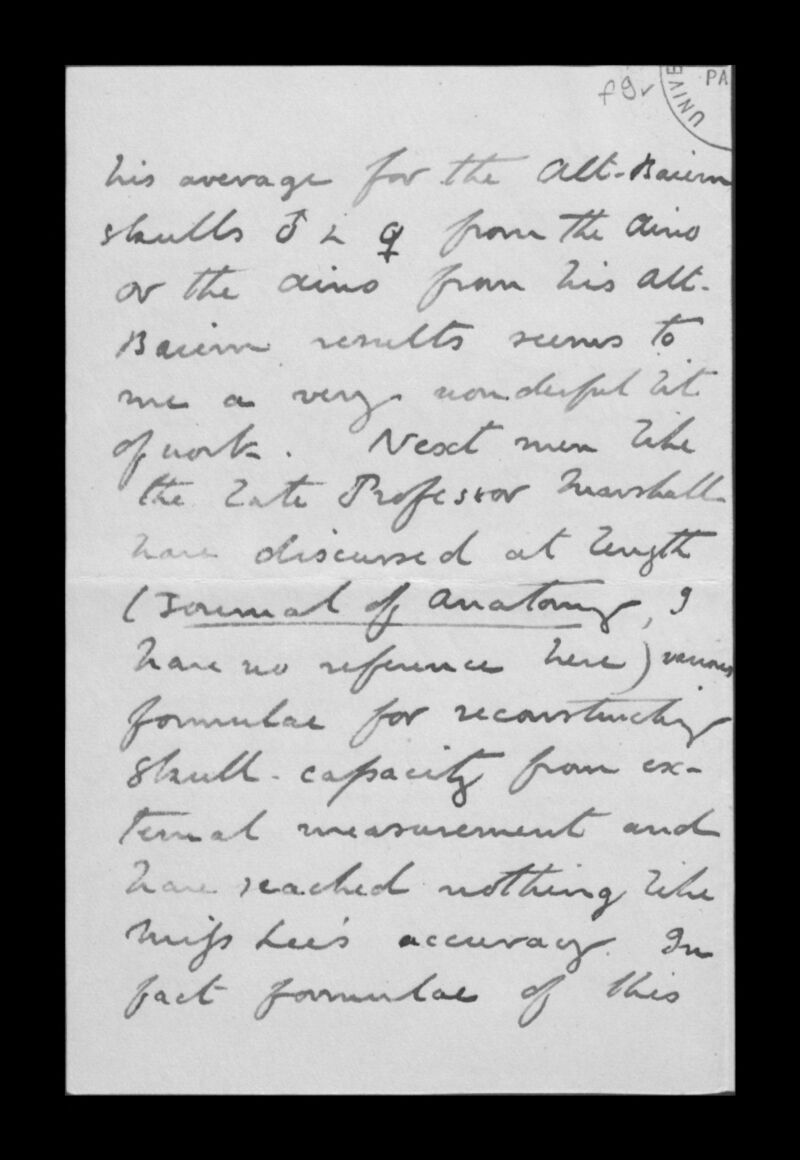 f9v
UNIVE
PA
his average for the Alt-Baiern
skulls ♂ & ♀ from the Aino
or the Aino from his Alt-
Baiern results seems to
me a very wonderful bit
of work. Next men like
the late Professor Marshall
have discussed at length
(Journal of Anatomy, I
have no reference here) various
formulae for reconstructing
skull-capacity from ex-
ternal measurement and
have reached nothing like
Miss Lee's accuracy. In
fact formulae of this